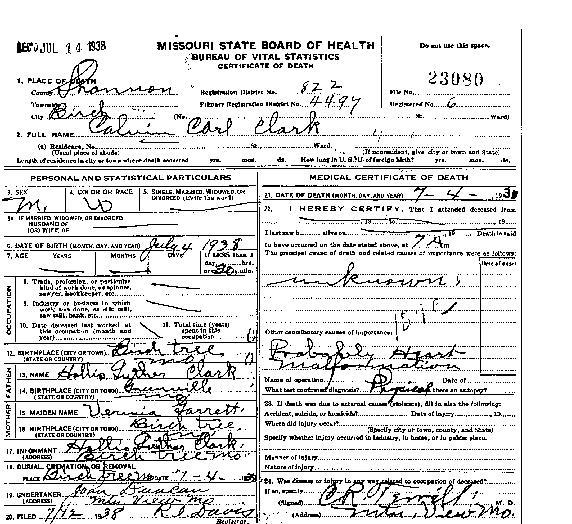 REC'D JUL 14 1938
MISSOURI STATE BOARD OF HEALTH
BUREAU OF VITAL STATISTICS
CERTIFICATE OF DEATH
Do not use this space.
23080
1. PLACE OF DEATH
County Shannon
Registration District No. 822
File No.
Township
Primary Registration District No. 4497
Registered No. 6
City Birch (No. St. Ward)
2. FULL NAME Calvin Carl Clark
(a) Residence, No. St. Ward.
(Usual place of abode) (If nonresident, give city or town and State)
Length of residence in city or town where death occurred yrs. mos. ds. How long in U. S., if of foreign birth? yrs. mos. ds.
PERSONAL AND STATISTICAL PARTICULARS
3. SEX M. 4. COLOR OR RACE W 5. SINGLE, MARRIED, WIDOWED, OR DIVORCED (write the word)
5a. IF MARRIED, WIDOWED, OR DIVORCED
HUSBAND OF
(OR) WIFE OF
6. DATE OF BIRTH (MONTH, DAY, AND YEAR) July 4 1938
7. AGE YEARS MONTHS DAYS If LESS than 1 day, hrs. or 20 min.
OCCUPATION
8. Trade, profession, or particular kind of work done, as spinner, sawyer, bookkeeper, etc.
9. Industry or business in which work was done, as silk mill, saw mill, bank, etc.
10. Date deceased last worked at this occupation (month and year)
11. Total time (years) spent in this occupation
12. BIRTHPLACE (CITY OR TOWN) Birch tree
(STATE OR COUNTRY) mo
FATHER
13. NAME Hollis Luther Clark
14. BIRTHPLACE (CITY OR TOWN)
(STATE OR COUNTRY)
MOTHER
15. MAIDEN NAME Garrett
16. BIRTHPLACE (CITY OR TOWN) Birch tree
(STATE OR COUNTRY) mo
17. INFORMANT Hollis Luther Clark
(ADDRESS) Birch tree mo
18. BURIAL, CREMATION, OR REMOVAL
PLACE Birch tree mo DATE 7-4-38
19. UNDERTAKER Duncan
(ADDRESS) Mtn View Mo
20. FILED 7/12 1938 R L Davis
Registrar
MEDICAL CERTIFICATE OF DEATH
21. DATE OF DEATH (MONTH, DAY, AND YEAR) 7-4- 1938
22. I HEREBY CERTIFY, That I attended deceased from
19 to 19
I last saw h alive on 19 Death is said
to have occurred on the date stated above, at 7 A m
The principal cause of death and related causes of importance were as follows:
Date of onset
unknown
Other contributory causes of importance:
Probably Heart
Malformation
Name of operation Date of
What test confirmed diagnosis? Physical Was there an autopsy?
23. If death was due to external causes (violence), fill in also the following:
Accident, suicide, or homicide? Date of injury 19
Where did injury occur?
(Specify city or town, county, and State)
Specify whether injury occurred in industry, in home, or in public place.
Manner of injury
Nature of injury
24. Was disease or injury in any way related to occupation of deceased?
If so, specify
(Signed) M. D.
(Address) Mtn. View Mo.